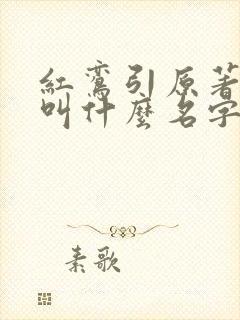 紅鸞引原著
叫什麼名字
素歌